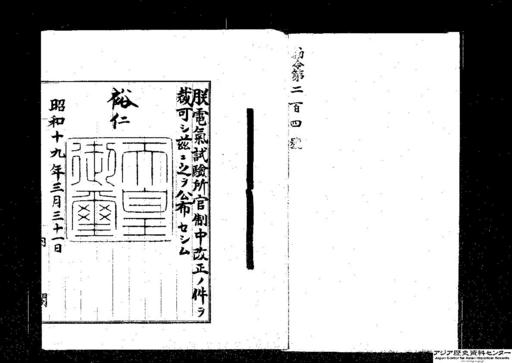 勅令第二百四號
朕電氣試驗所官制中改正ノ件ヲ
裁可シ茲ニ之ヲ公布セシム
裕仁
天皇御璽
昭和十九年三月三十一日
内閣
アジア歴史資料センター
Japan Center for Asian Historical Records